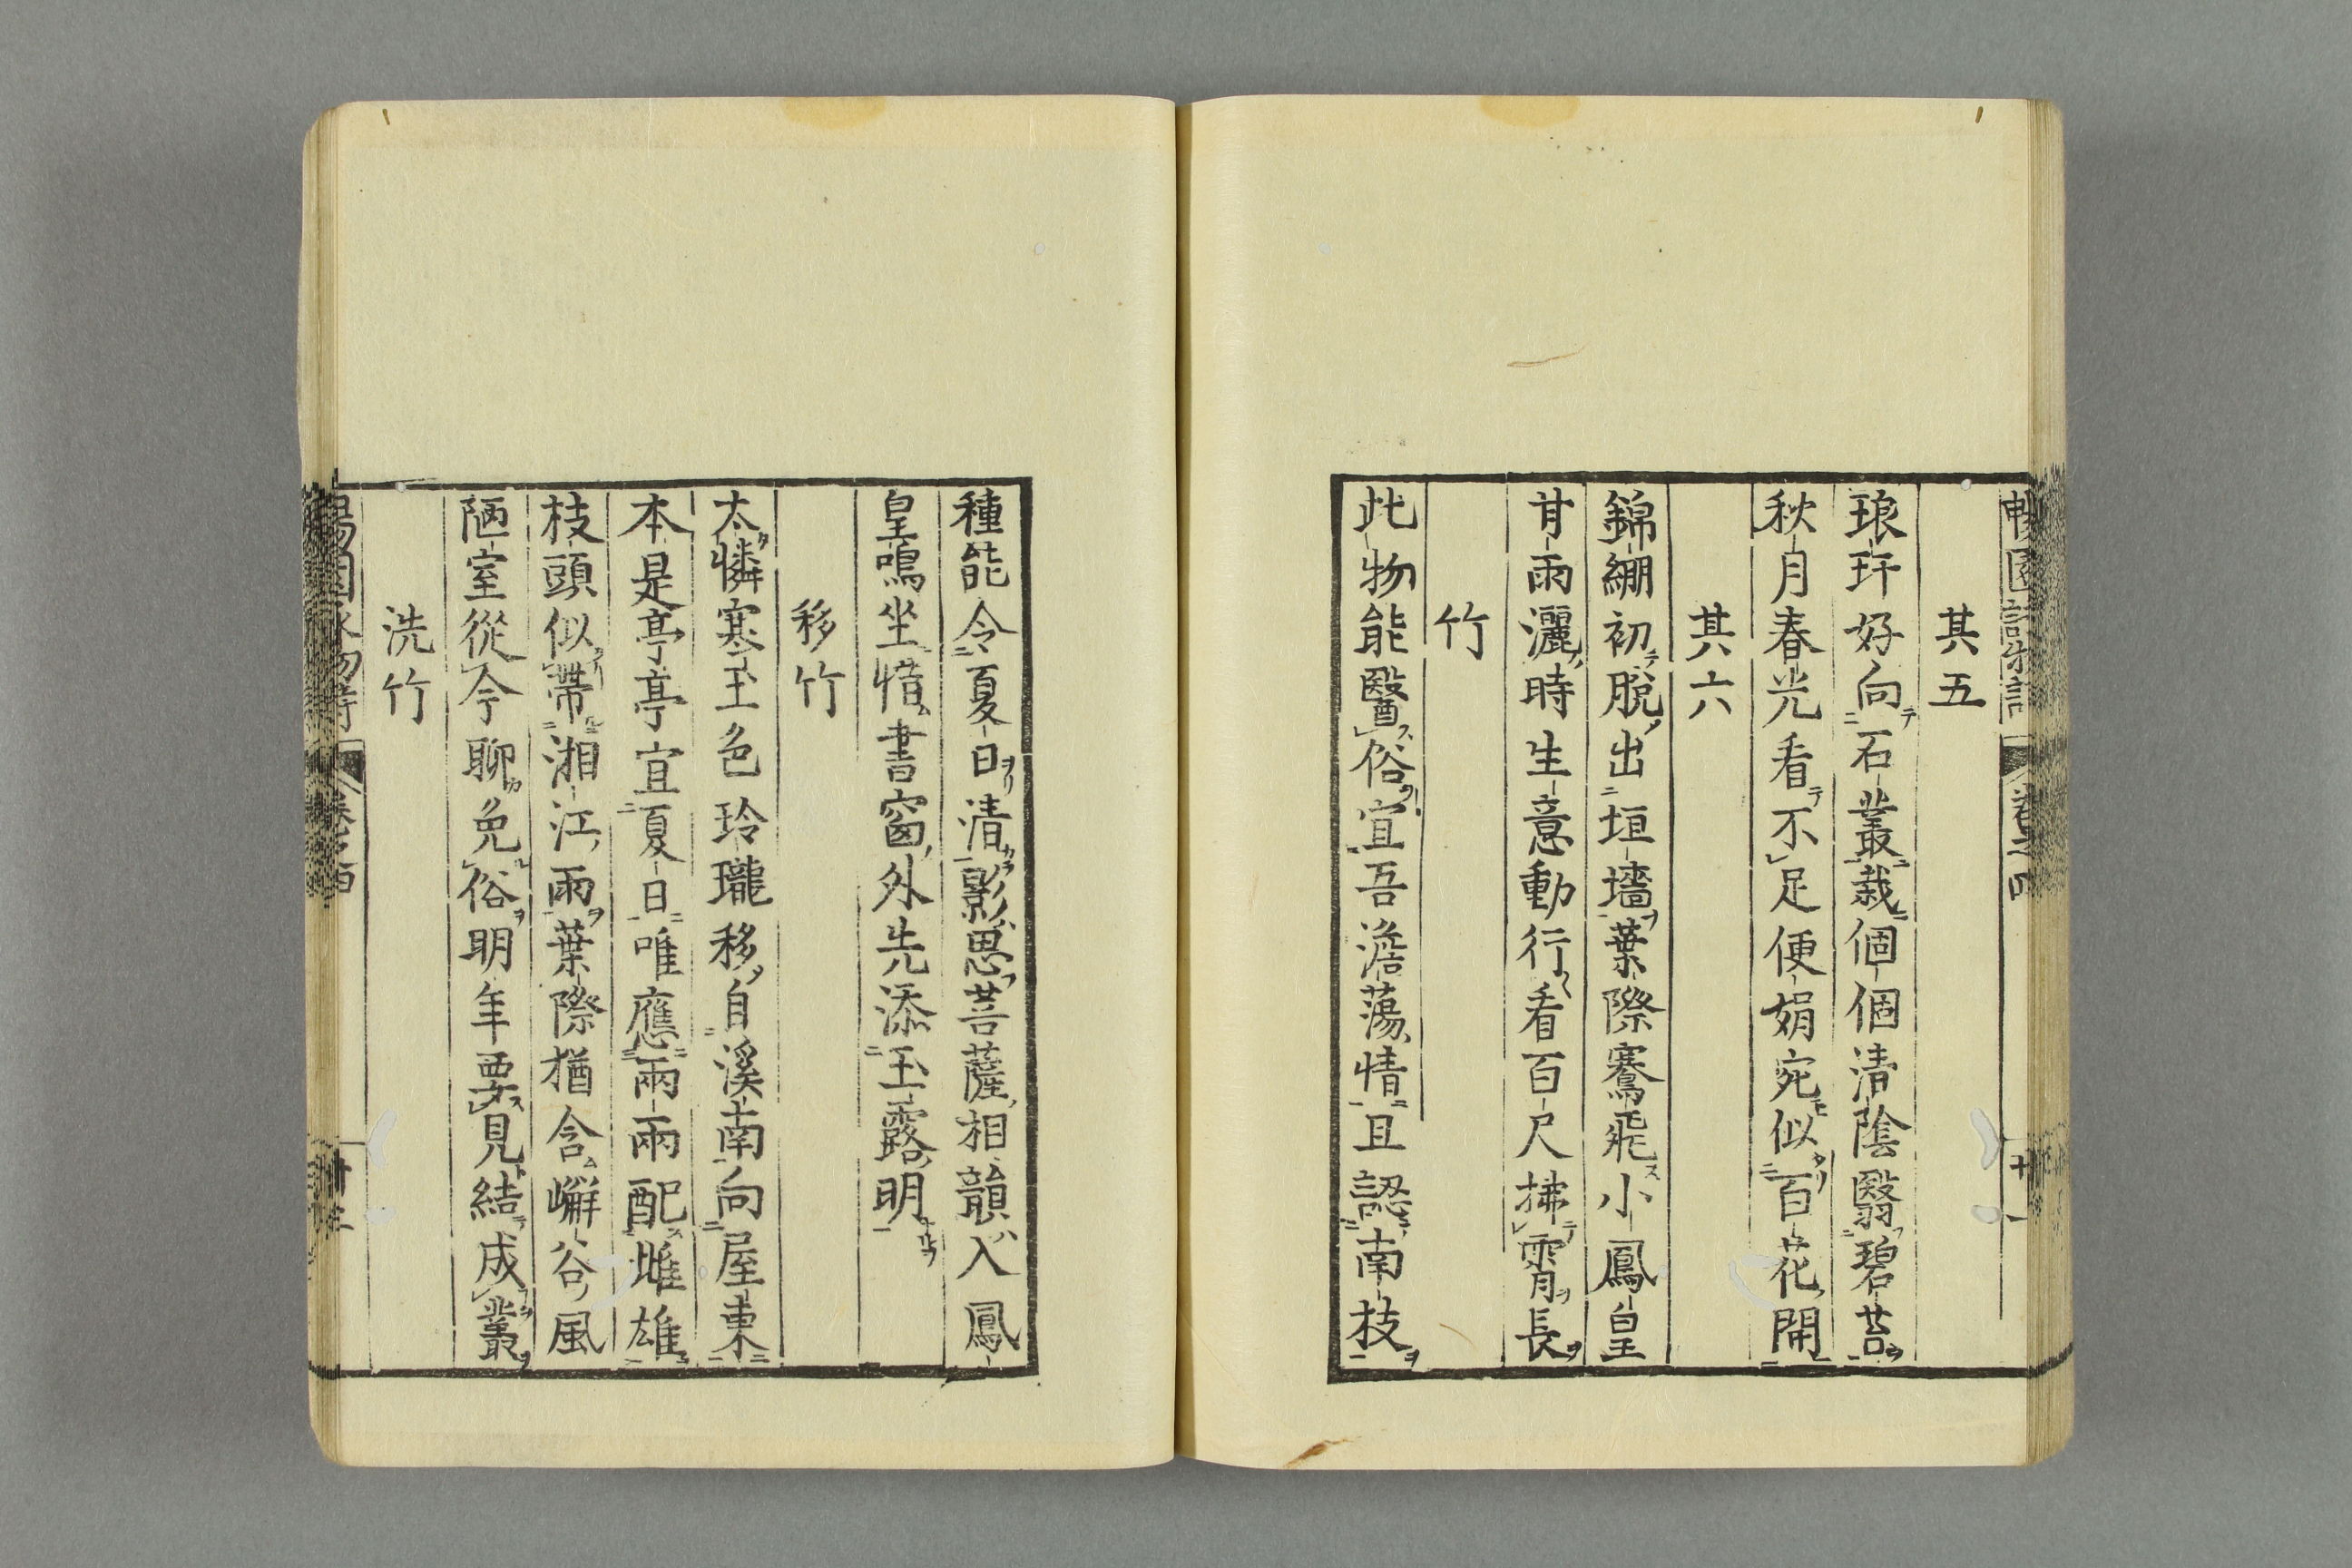 其五
琅玕好向石叢栽個個清陰翳碧苔
秋月春光看不足便娟宛似百花開
其六
錦綳初脫出垣墻葉際騫飛小鳳皇
甘雨灑時生意動行看百尺拂霄長
竹
此物能醫俗宜吾澹蕩情且認南枝
種能令夏日清影思菩薩相韻入鳳
皇鳴坐惜書窗外先添玉露明
移竹
太憐寒玉色玲瓏移自溪南向屋東
本是亭亭宜夏日唯應兩兩配雌雄
枝頭似帶湘江雨葉際猶含嶰谷風
陋室從今聊免俗明年要見結成叢
洗竹